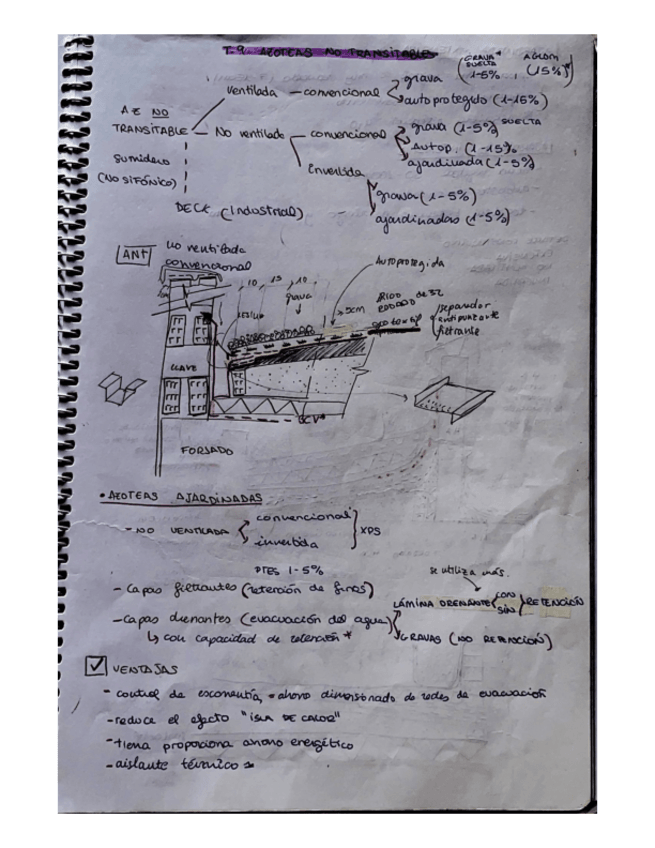 T.9 AZOTEAS NO TRANSITABLES
(GRAVA SUELTA 1-5%, AGLOM (15%))*
ventilada — convencional
grava
autoprotegido (1-15%)
AZ NO TRANSITABLE
NO ventilado — convencional
grava (1-5%) SUELTA
Autop. (1-15%
ajardinada (1-5%)
Sumidero
(NO SIFÓNICO)
Invertida
grava (1-5%)
ajardinadas (1-5%)
DECK (Industrial)
ANT
no ventilada
convencional
Autoprotegida
10 15 10
grava
>5cm
ÁRIDO RODADO de 32
geotextil
separador
antipunzante
filtrante
LLAVE
BCV*
FORJADO
• AZOTEAS AJARDINADAS
- NO VENTILADA
convencional
invertida
XPS
PTES 1-5%
- Capas filtrantes (retención de finos)
se utiliza más.
- Capas drenantes (evacuación del agua)
LÁMINA DRENANTE
CON
SIN
RETENCIÓN
↳ con capacidad de retención *
GRAVAS (NO RETENCIÓN)
☑ VENTAJAS
- control de escorrentía, ahorro dimensionado de redes de evacuación
- reduce el efecto "ISLA DE CALOR"
- tierra proporciona ahorro energético
- aislante térmico